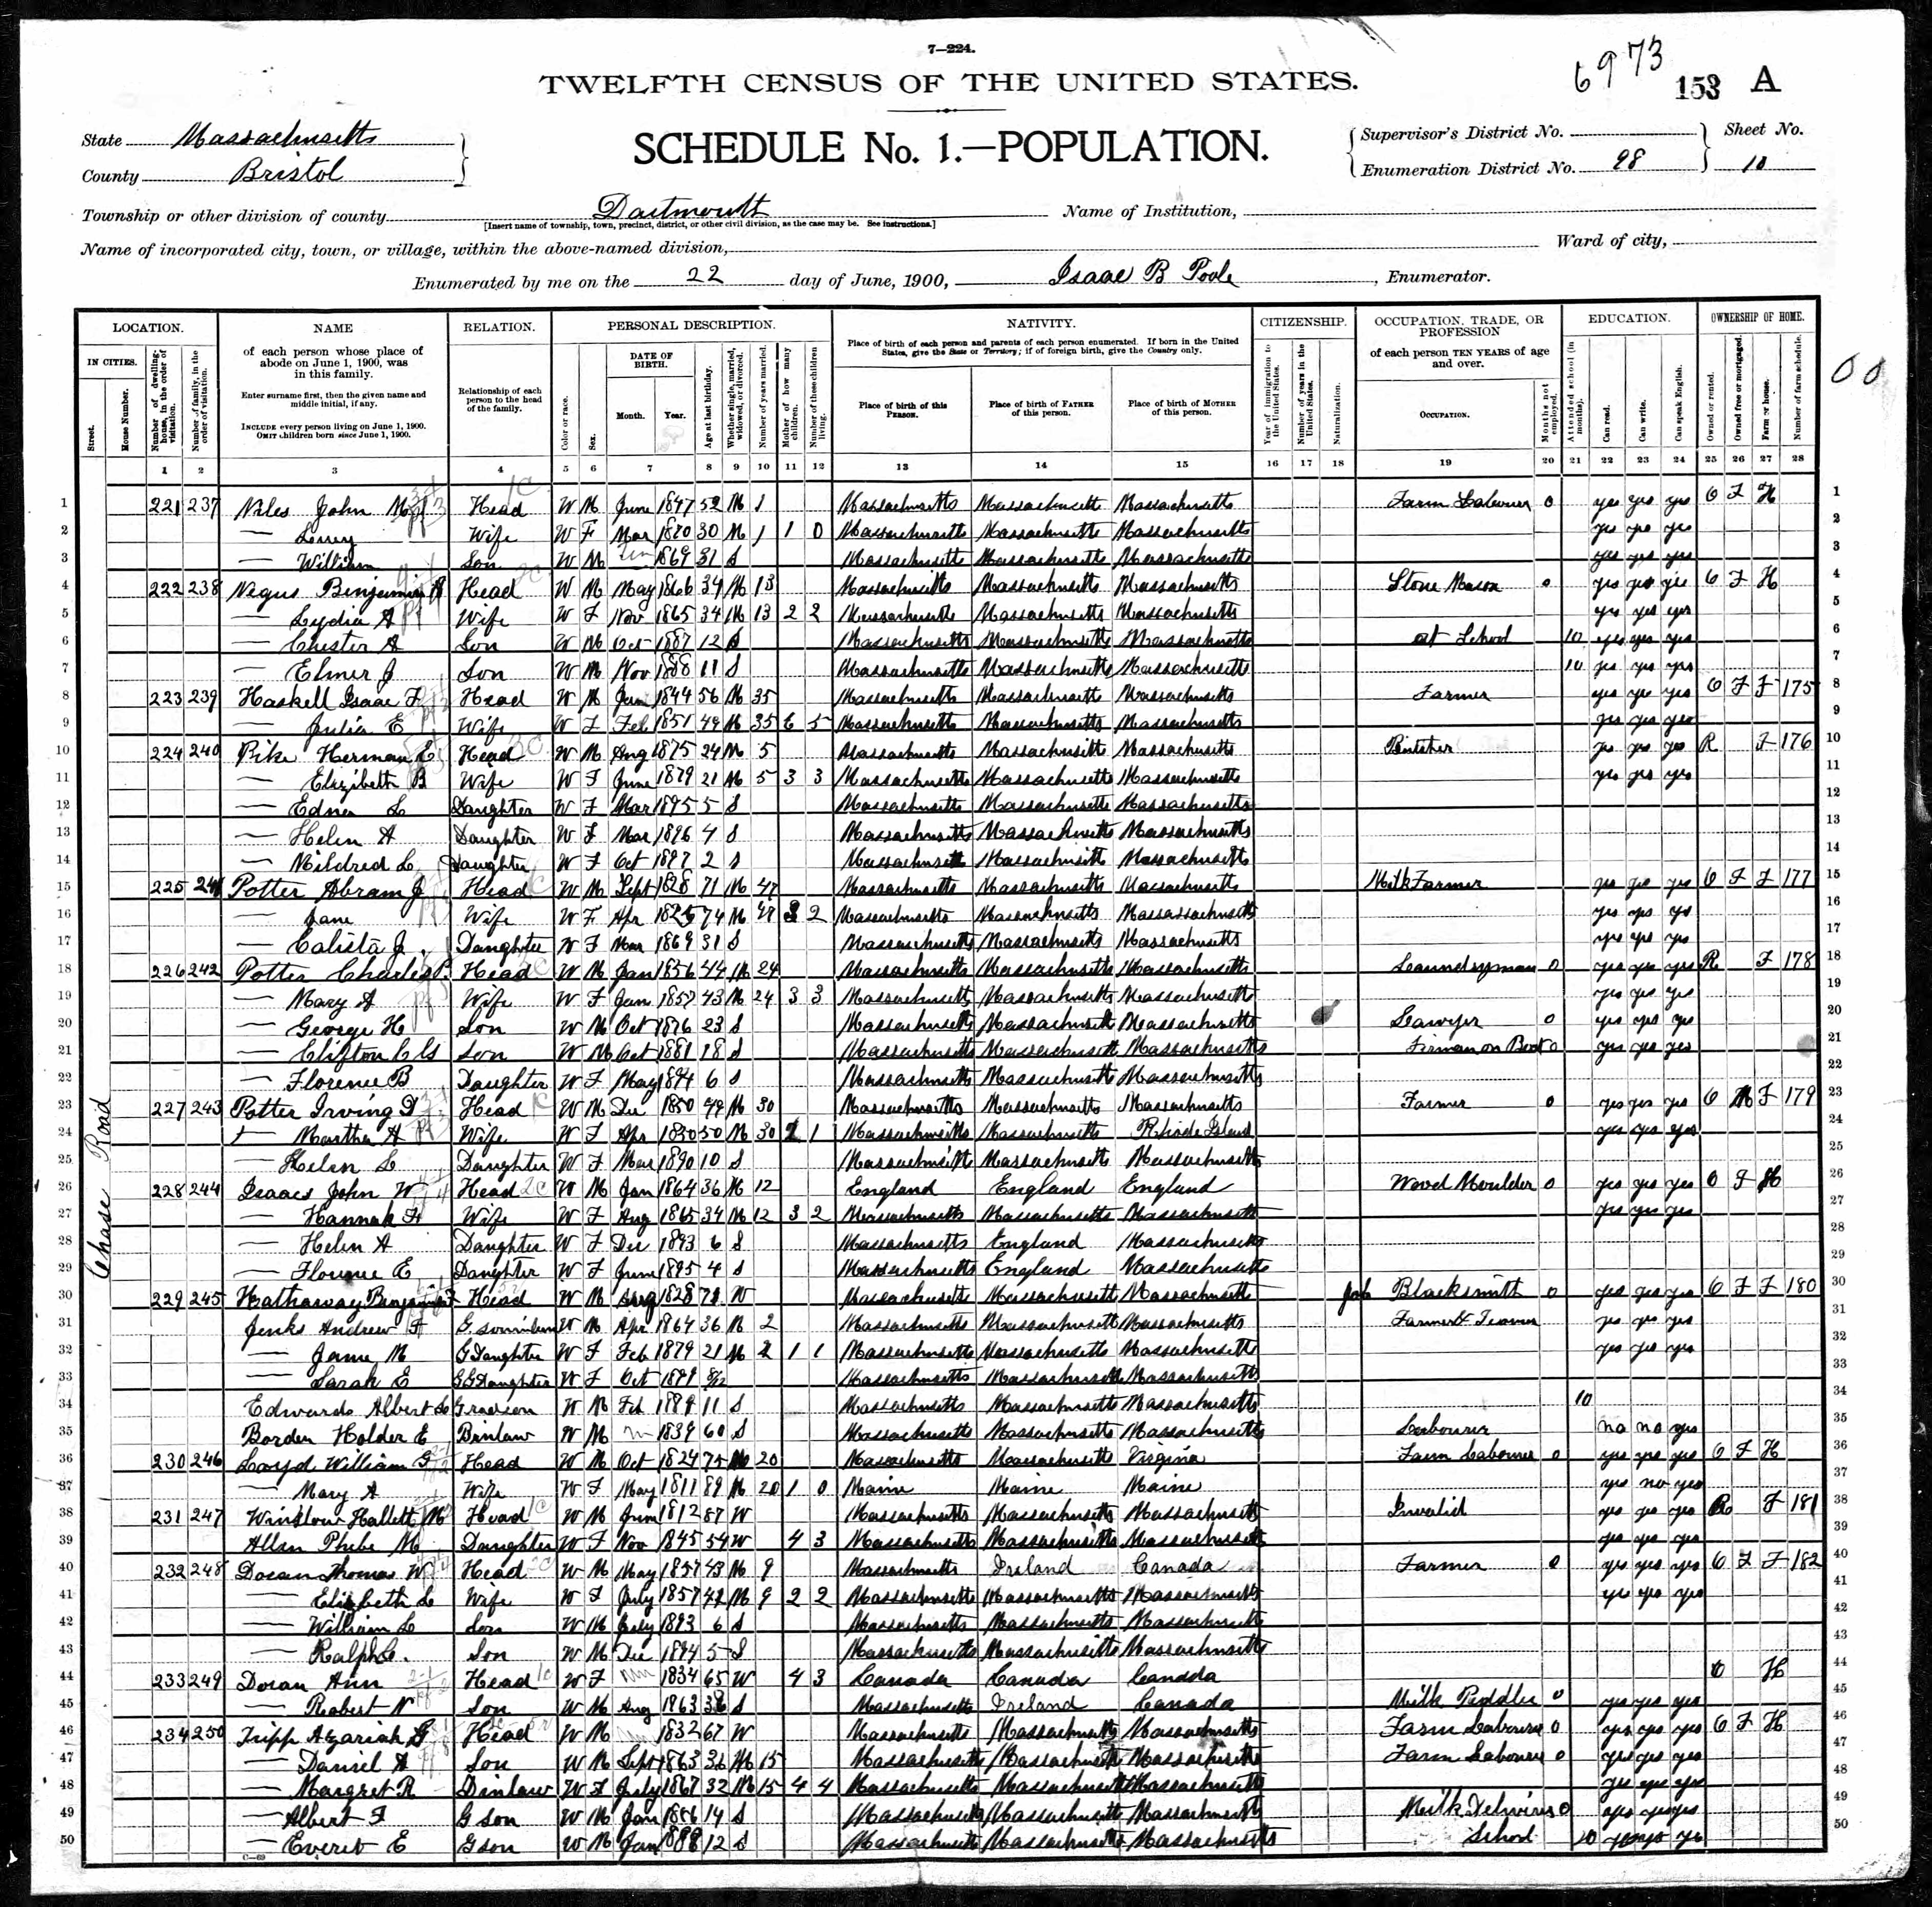 7—224.
TWELFTH CENSUS OF THE UNITED STATES.
6973 153 A
SCHEDULE No. 1.—POPULATION.
State Massachusetts
County Bristol
Supervisor's District No.
Enumeration District No. 98
Sheet No. 10
Township or other division of county Dartmouth Name of Institution,
[Insert name of township, town, precinct, district, or other civil division, as the case may be. See instructions.]
Name of incorporated city, town, or village, within the above-named division, Ward of city,
Enumerated by me on the 22 day of June, 1900, Isaac B Poole, Enumerator.
LOCATION. NAME RELATION. PERSONAL DESCRIPTION. NATIVITY. CITIZENSHIP. OCCUPATION, TRADE, OR PROFESSION EDUCATION. OWNERSHIP OF HOME.
IN CITIES. Street. House Number. Number of dwelling-house, in the order of visitation. Number of family, in the order of visitation.
of each person whose place of abode on June 1, 1900, was in this family.
Enter surname first, then the given name and middle initial, if any.
INCLUDE every person living on June 1, 1900. OMIT children born since June 1, 1900.
Relationship of each person to the head of the family.
Color or race. Sex. DATE OF BIRTH. Month. Year. Age at last birthday. Whether single, married, widowed, or divorced. Number of years married. Mother of how many children. Number of these children living.
Place of birth of each person and parents of each person enumerated. If born in the United States, give the State or Territory; if of foreign birth, give the Country only.
Place of birth of this PERSON. Place of birth of FATHER of this person. Place of birth of MOTHER of this person.
Year of immigration to the United States. Number of years in the United States. Naturalization.
of each person TEN YEARS of age and over.
OCCUPATION. Months not employed.
Attended school (in months). Can read. Can write. Can speak English.
Owned or rented. Owned free or mortgaged. Farm or house. Number of farm schedule.
1 2 3 4 5 6 7 8 9 10 11 12 13 14 15 16 17 18 19 20 21 22 23 24 25 26 27 28
Chase Road
1 221 237 Niles John M Head W M June 1847 52 M 1 Massachusetts Massachusetts Massachusetts Farm Labourer 0 yes yes yes O F H 1
2 — Wife W F Mar 1870 30 M 1 1 0 Massachusetts Massachusetts Massachusetts yes yes yes 2
3 — William Son W M Un 1869 31 S Massachusetts Massachusetts Massachusetts yes yes yes 3
4 222 238 Negus Benjamin Head W M May 1866 34 M 13 Massachusetts Massachusetts Massachusetts Stone Mason 0 yes yes yes O F H 4
5 — Lydia A Wife W F Nov 1865 34 M 13 2 2 Massachusetts Massachusetts Massachusetts yes yes yes 5
6 — Chester A Son W M Oct 1887 12 S Massachusetts Massachusetts Massachusetts at School 10 yes yes yes 6
7 — Elmer J Son W M Nov 1888 11 S Massachusetts Massachusetts Massachusetts 10 yes yes yes 7
8 223 239 Haskell Isaac F Head W M Jan 1844 56 M 35 Massachusetts Massachusetts Massachusetts Farmer yes yes yes O F F 175 8
9 — Julia E Wife W F Feb 1851 49 M 35 6 5 Massachusetts Massachusetts Massachusetts yes yes yes 9
10 224 240 Pike Herman E Head W M Aug 1875 24 M 5 Massachusetts Massachusetts Massachusetts Butcher yes yes yes R F 176 10
11 — Elizibeth B Wife W F June 1879 21 M 5 3 3 Massachusetts Massachusetts Massachusetts yes yes yes 11
12 — Edna L Daughter W F Mar 1895 5 S Massachusetts Massachusetts Massachusetts 12
13 — Helen A Daughter W F Mar 1896 4 S Massachusetts Massachusetts Massachusetts 13
14 — Mildred L Daughter W F Oct 1897 2 S Massachusetts Massachusetts Massachusetts 14
15 225 241 Potter Abram J Head W M Sept 1828 71 M 47 Massachusetts Massachusetts Massachusetts Milk Farmer yes yes yes O F F 177 15
16 — Jane Wife W F Apr 74 M 2 Massachusetts Massachusetts Massassachusetts yes yes yes 16
17 — Calista J. Daughter W F Mar 1869 31 S Massachusetts Massachusetts Massachusetts yes yes yes 17
18 226 242 Potter Charles P. Head W M Jan 1856 44 M 24 Massachusetts Massachusetts Massachusetts Laundryman 0 yes yes yes R F 178 18
19 — Mary A Wife W F Jan 1857 43 M 24 3 3 Massachusetts Massachusetts Massachusetts yes yes yes 19
20 — George H Son W M Oct 1876 23 S Massachusetts Massachusetts Massachusetts Lawyer 0 yes yes yes 20
21 — Clifton Son W M Oct 1881 18 S Massachusetts Massachusetts Massachusetts Fireman on Boat 0 yes yes yes 21
22 — Florence B Daughter W F May 1894 6 S Massachusetts Massachusetts Massachusetts 22
23 227 243 Potter Irving D Head W M Dec 1850 49 M 30 Massachusetts Massachusetts Massachusetts Farmer 0 yes yes yes O M F 179 23
24 — Martha A Wife W F Apr 1850 50 M 30 1 Massachusetts Massachusetts Rhode Island yes yes yes 24
25 — Helen L Daughter W F Mar 1890 10 S Massachusetts Massachusetts Massachusetts 25
26 228 244 Isaacs John W Head W M Jan 1864 36 M 12 England England England Wood Moulder 0 yes yes yes O F H 26
27 — Hannah F Wife W F Aug 1865 34 M 12 3 2 Massachusetts Massachusetts Massachusetts yes yes yes 27
28 — Helen A Daughter W F Dec 1893 6 S Massachusetts England Massachusetts 28
29 — Florence E Daughter W F June 1895 4 S Massachusetts England Massachusetts 29
30 229 245 Hathaway Benjamin F Head W M Aug 1828 71 W Massachusetts Massachusetts Massachusetts Blacksmith 0 yes yes yes O F F 180 30
31 Jenks Andrew F G. soninlaw W M Apr 1864 36 M 2 Massachusetts Massachusetts Massachusetts Farmer & yes yes yes 31
32 — Jane M G Daughter W F Feb 1879 21 M 2 1 1 Massachusetts Massachusetts Massachusetts yes yes yes 32
33 — Sarah E G G Daughter W F Oct 1899 8/12 Massachusetts Massachusetts Massachusetts 33
34 Edwards Albert L Grandson W M Feb 1889 11 S Massachusetts Massachusetts Massachusetts 10 34
35 Borden Holder E Brinlaw W M Un 1839 60 S Massachusetts Massachusetts Massachusetts Labourer no no yes 35
36 230 246 Loyd William G Head W M Oct 1824 75 M 20 Massachusetts Massachusetts Virginia Farm Labourer 0 yes yes yes O F H 36
37 — Mary A Wife W F May 1811 89 M 20 1 0 Maine Maine Maine yes no yes 37
38 231 247 Winslow Hallett M Head W M June 1812 87 W Massachusetts Massachusetts Massachusetts Invalid yes yes yes R F 181 38
39 Allen Phebe M Daughter W F Nov 1845 54 W 4 3 Massachusetts Massachusetts Massachusetts yes yes yes 39
40 232 248 Doran Thomas W Head W M May 1857 43 M 9 Massachusetts Ireland Canada Farmer 0 yes yes yes O F F 182 40
41 — Elizbeth L Wife W F July 1857 42 M 9 2 2 Massachusetts Massachusetts Massachusetts yes yes yes 41
42 — William L Son W M July 1893 6 S Massachusetts Massachusetts Massachusetts 42
43 — Ralph L. Son W M Dec 1894 5 S Massachusetts Massachusetts Massachusetts 43
44 233 249 Doran Ann Head W F Un 1834 65 W 4 3 Canada Canada Canada O H 44
45 — Robert N Son W M Aug 1863 36 S Massachusetts Ireland Canada Milk Peddler 0 yes yes yes 45
46 234 250 Tripp Azariah G Head W M 1832 67 W Massachusetts Massachusetts Massachusetts Farm Labourer 0 yes yes yes O F H 46
47 — Daniel A Son W M Sept 1863 36 M 15 Massachusetts Massachusetts Massachusetts Farm Labourer 0 yes yes yes 47
48 — Margret R Dinlaw W F July 1867 32 M 15 4 4 Massachusetts Massachusetts Massachusetts yes yes yes 48
49 — Albert F G son W M Jan 1886 14 S Massachusetts Massachusetts Massachusetts Milk 0 yes yes yes 49
50 — Everet E G son W M Jan 1888 12 S Massachusetts Massachusetts Massachusetts School 10 yes yes yes 50
C—69